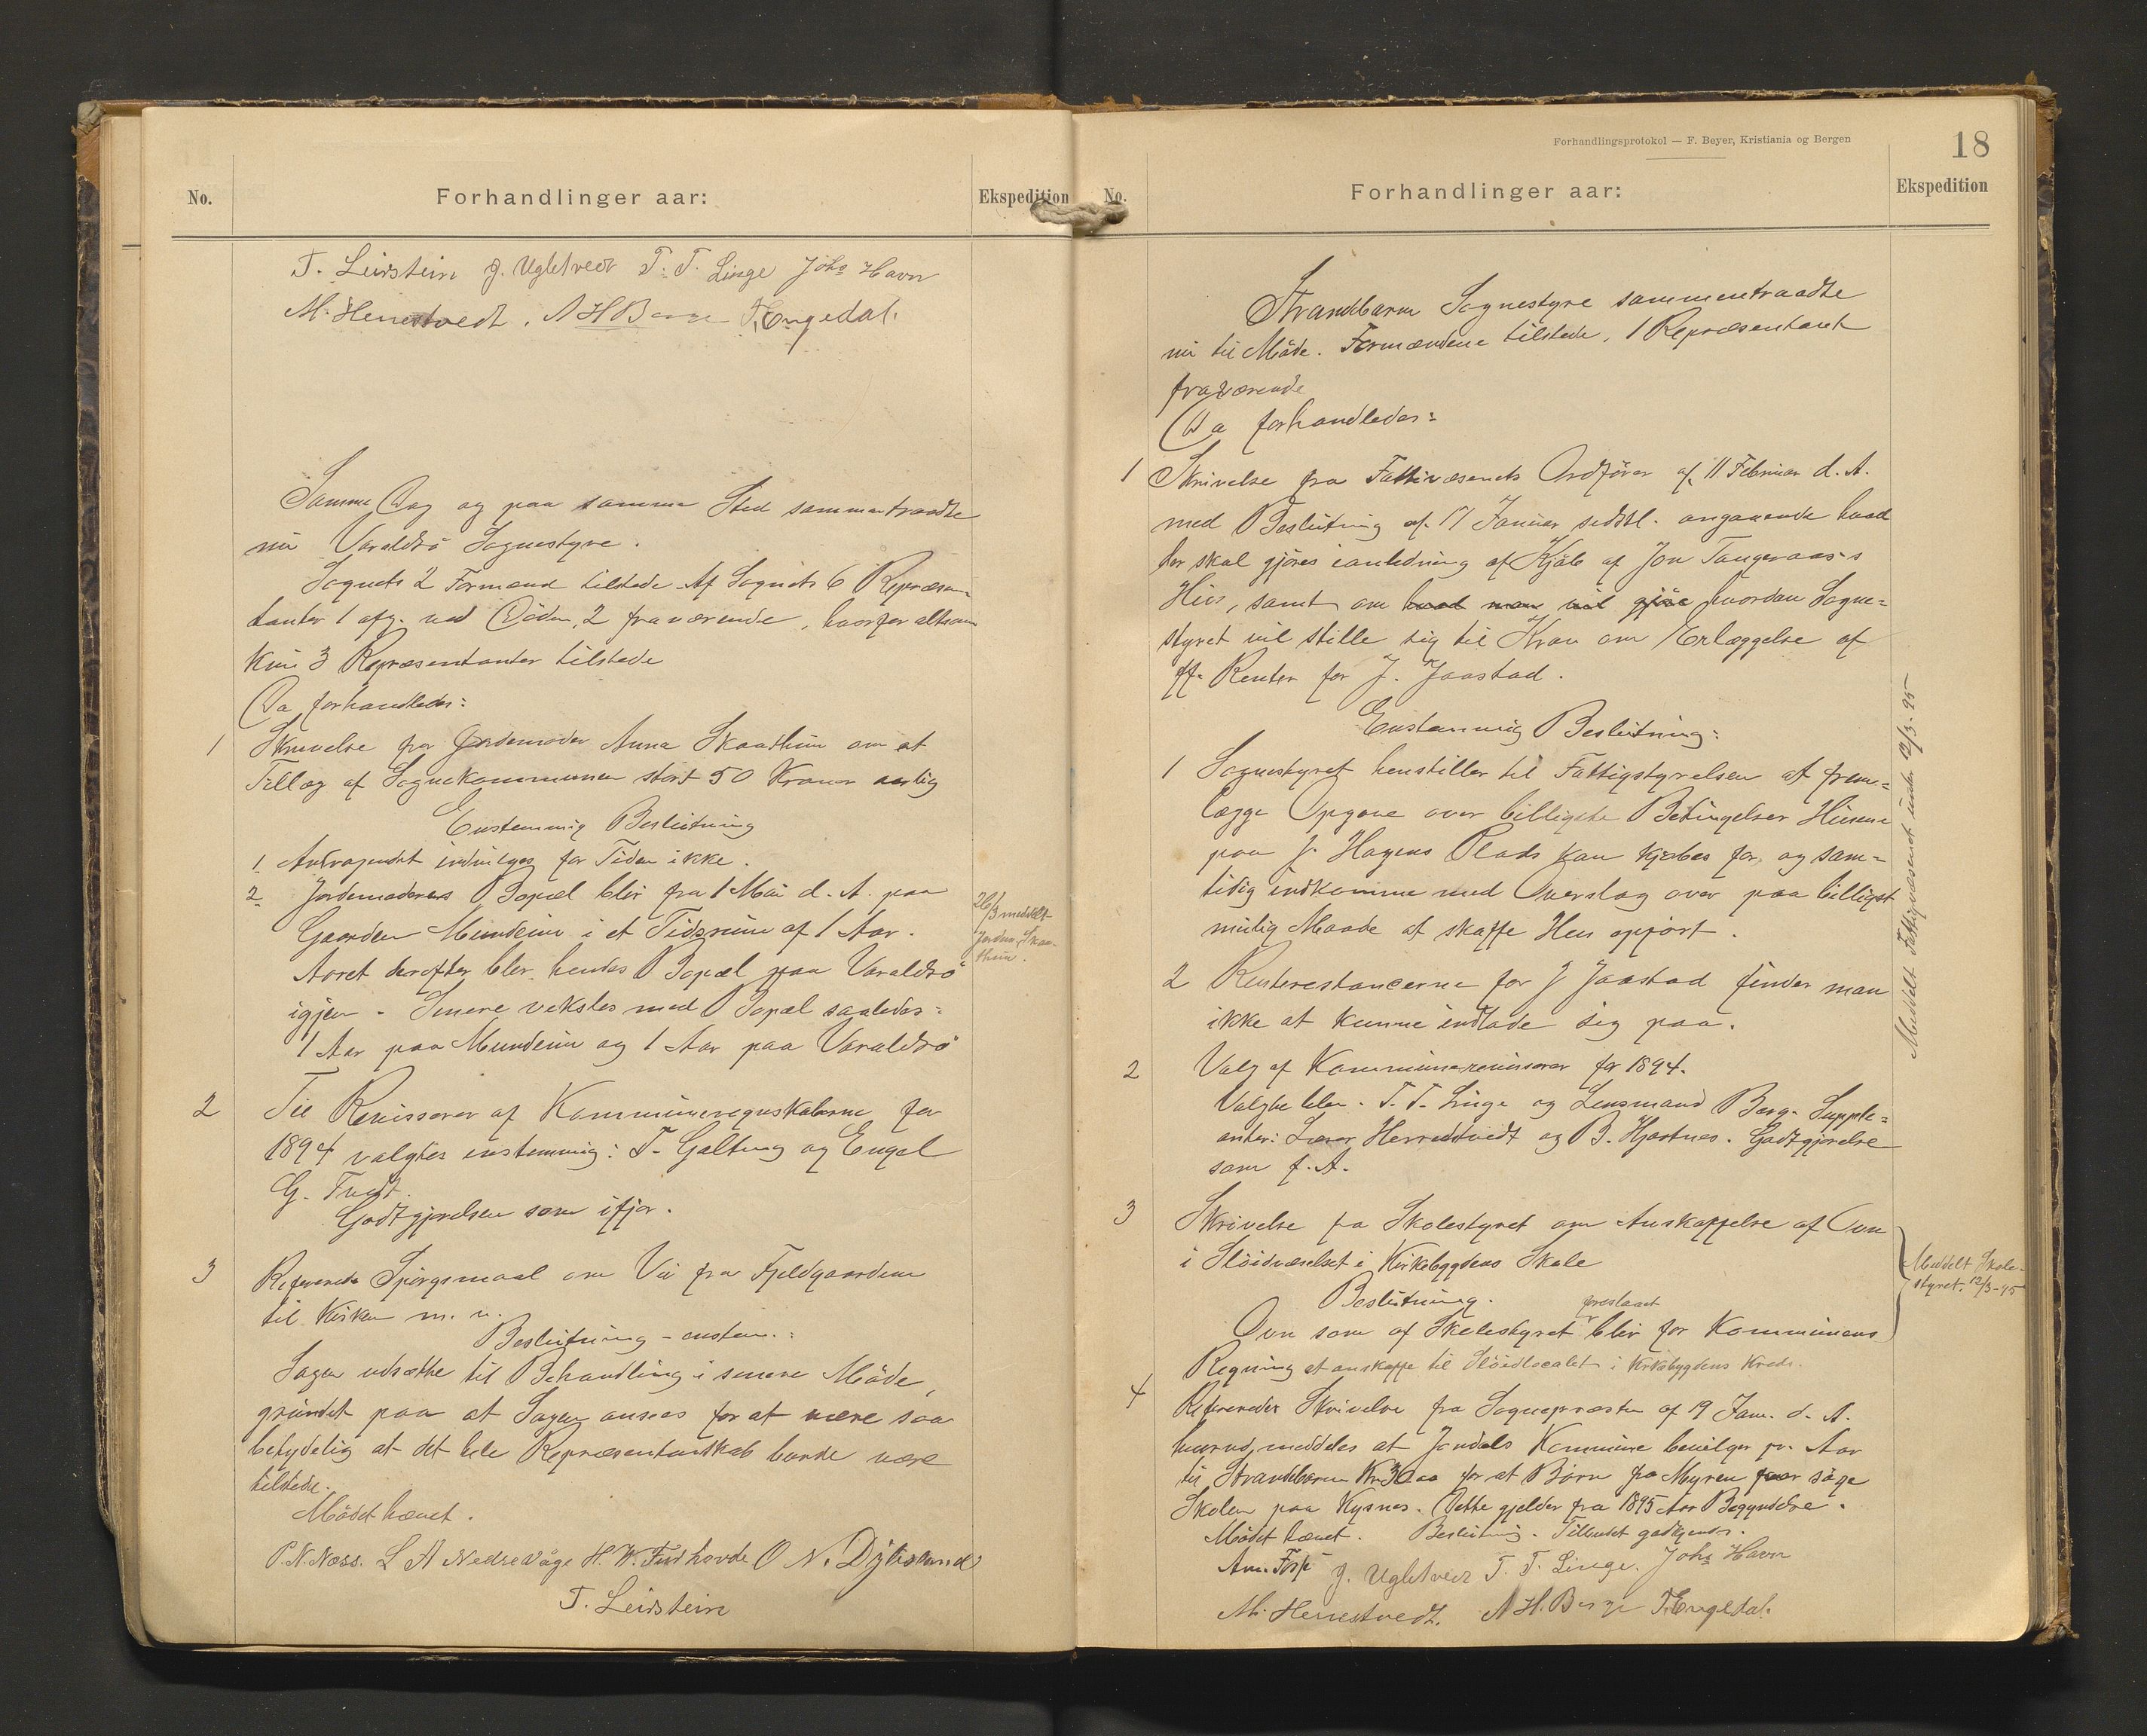 No.
Forhandlinger aar:
Ekspedition
T. Leirstein J. Ugletvedt T. T. Linge Johs Havn
M. Herrestvedt. A H Berge T. Engedal.
Samme Dag og paa samme Sted sammentraadte
nu Varaldsö Sognestyre.
Sognets 2 Formænd tilstede. Af Sognets 6 Repræsen-
tanter 1 afg. ved Döden, 2 fraværende, hvorfor altsaa
kun 3 Repræsentanter tilstede
Da forhandledes:
1 Skrivelse fra Jordemoder Anna Skaathun om et
Tillæg af Sognekommunen stort 50 Kroner aarlig
Enstemmig Beslutning
1. Andragendet indvilges for Tiden ikke.
2 Jordemoderens Bopæl blir fra 1 Mai d. A. paa
Gaarden Mundeim i et Tidsrum af 1 Aar.
Aaret derefter blir hendes Bopæl paa Varaldsö
igjen. Senere veksles med Bopæl saaledes:
1 Aar paa Mundeim og 1 Aar paa Varaldsö
26/3 meddelt
Jordm. Skaa-
thun.
2 Til Revisorer af Kommuneregnskaberne for
1894 valgtes enstemmig: T. Galtung og Engel
G. Tvedt.
Godtgjørelsen som ifjor.
3 Refereredes Spörgsmaal om Vei fra Fjeldgaardene
til Kirken m. v.
Beslutning - enstem.:
Sagen udsættes til Behandling i senere Möde,
grundet paa at Sagen ansees for at være saa
betydelig at det hele Repræsentantskab burde være
tilstede.
Mödet hævet.
P. N. Næss. L A Nedrevåge H. W. Furhovde O N. Dÿksund
T. Leirstein
Forhandlingsprotokol — F. Beyer, Kristiania og Bergen
18
No.
Forhandlinger aar:
Ekspedition
Strandebarm Sognestyre sammentraadte
nu til Möde. Formændene tilstede, 1 Repræsentant
fraværende
Da forhandledes:
1 Skrivelse fra Fattivæsenets Ordförer af 11 Februar d. A.
med Beslutning af 17 Januar sidstl. angaaende hvad
der skal gjöres ianledning af Kjöb af Jon Tangeraas's
Hus, samt om hvad man vil gjöre hvordan Sogne=
styret vil stille sig til Krav om Erlæggelse af
ff. Renter for J. Jaastad.
Enstemmig Beslutning:
1 Sognestyret henstiller til Fattigstyrelsen at frem=
lægge Opgave over billigste Betingelser Husene
paa J. Hagens Plads kan kjøbes for, og sam=
tidig indkomme med Overslag over paa billigst
mulig Maade at skaffe Hus opfört.
2 Renterestancerne for J Jaastad finder man
ikke at kunne indlade sig paa.
Meddelt Fattigvæsenet under 12/3-95
2 Valg af Kommunerevisorer for 1894.
Valgte blev. T. T. Linge og Lensmand Berg. Supple=
anter: Lærer Herrestvedt og B. Hjartnes. Godtgjørelse
som f. A.
3 Skrivelse fra Skolestyret om Anskaffelse af Ovn
i Slöidværelset i Kirkebygdens Skole
Beslutning.
Ovn som af Skolestyret foreslaaet blir for Kommunens
Regning at anskaffe til Slöidlocalet i Kirkebygdens Kreds.
Meddelt Skole-
styret. 12/3-95
4 Refereredes Skrivelse fra Sognepræsten af 19 Jan. d. A.
hvorved meddeles at Jondals Kommune bevilger pr. Aar
til Strandebarm Kr 30 00 for at Börn fra Myren faar söge
Skolen paa Kysnes. Dette gjelder fra 1895 Aars Begyndelse.
Mödet hævet. Beslutning. Tilbudet godkjendes.
Am. Fosse J. Ugletvedt T. T. Linge. Johs Havn
M. Herrestvedt. A H. Berge T. Engedal.